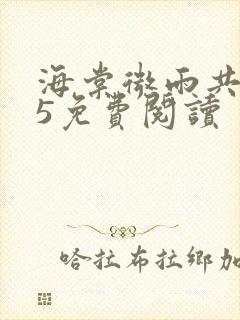 海棠微雨共
5免費閱讀
哈拉布拉鄉加